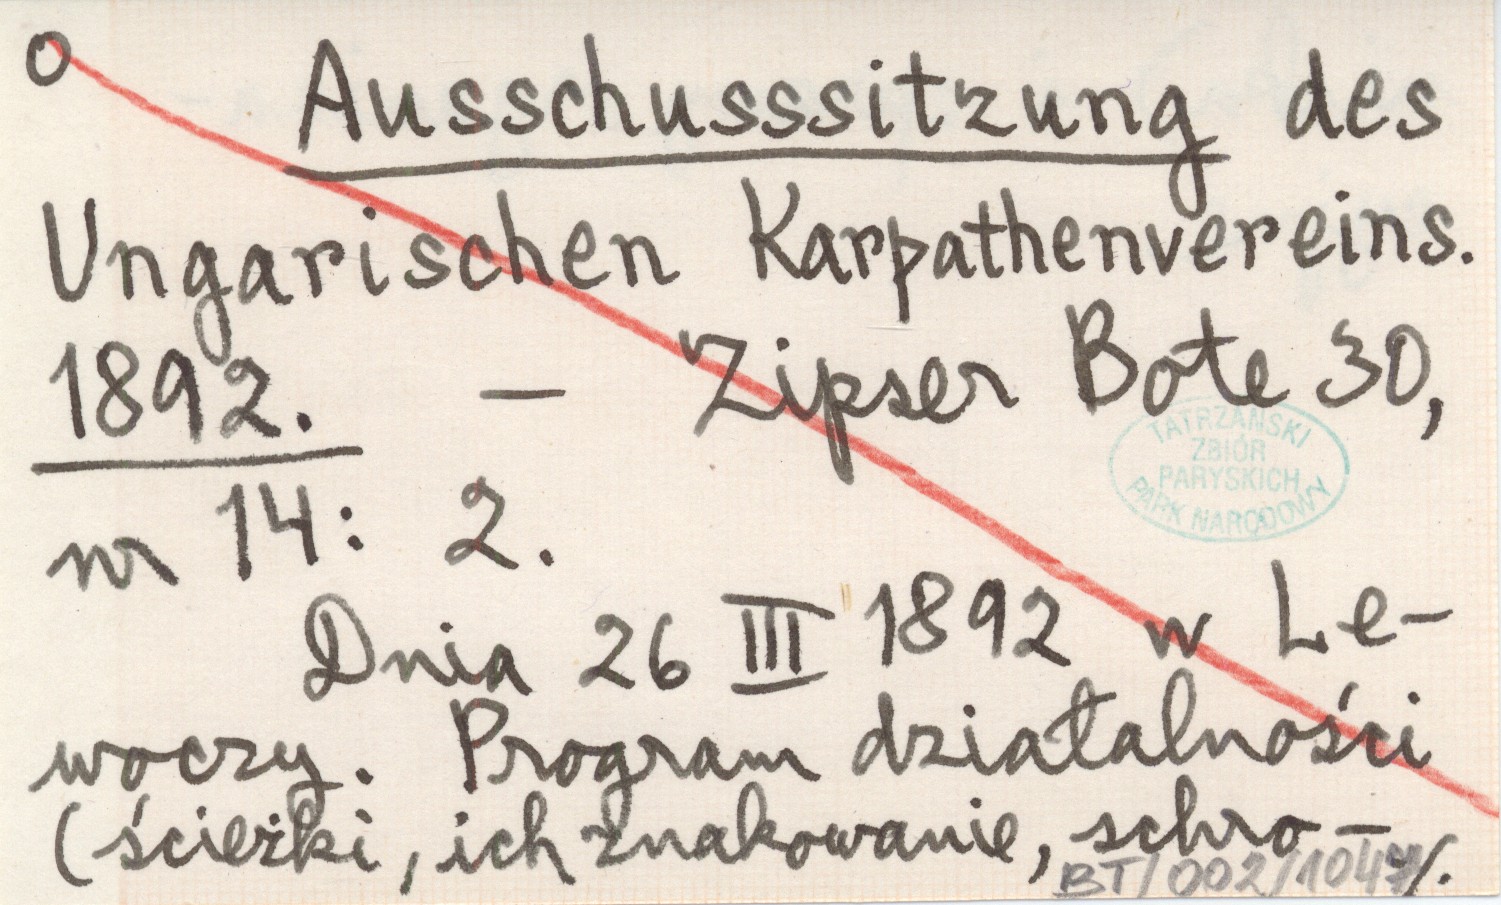 o Ausschusssitzung des
Ungarischen Karpathenvereins.
1892. — Zipser Bote 30,
TATRZAŃSKI
ZBIÓR
PARYSKICH
PARK NARODOWY
nr 14: 2.
Dnia 26 III 1892 w Le-
woczy. Program działalności
(ścieżki, ich znakowanie, schro-
BT/002/1047 /.